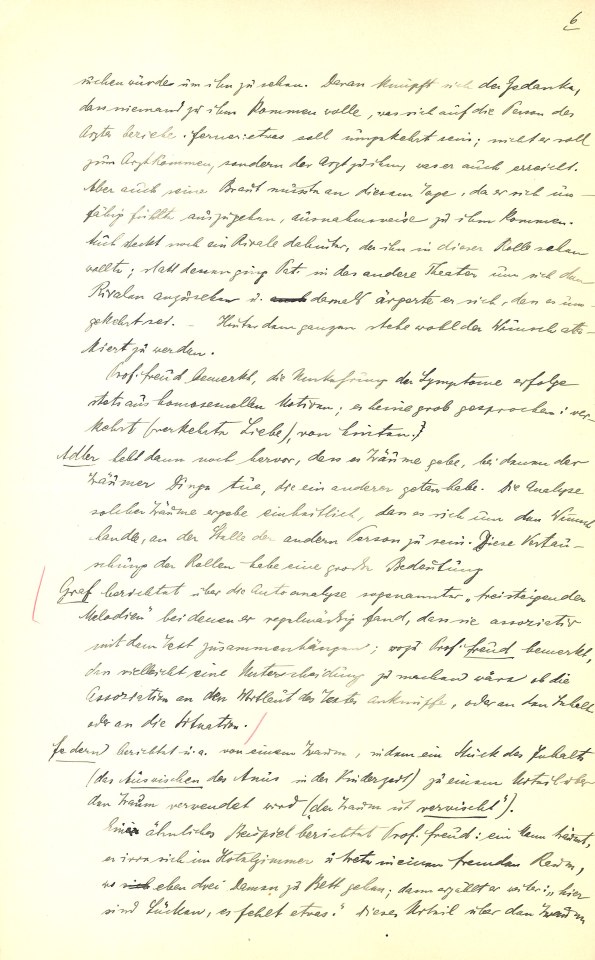 6
suchen würde, um ihn zu sehen. Daran knüpft sich der Gedanke,
dass niemand zu ihm kommen wolle, was sich auf die Person des
Arztes beziehe. ferner: etwas soll umgekehrt sein; nicht er soll
zum Arzt kommen, sondern der Arzt zu ihm, was er auch erreicht.
Aber auch seine Braut müsste an diesem Tage, da er sich un-
fähig fühlte auszugehen, ausnahmsweise zu ihm kommen.
Auch steckt noch ein Rivale dahinter, der ihn in dieser Rolle sehen
wollte; statt dessen ging Pat. in das andere Theater um sich den
Rivalen anzusehen u. damals ärgerte er sich, dass es um-
gekehrt sei. – Hinter dem ganzen stehe wohl der Wunsch
zu werden.
Prof. Freud bemerkt, die Umkehrung der Symptome erfolge
stets aus homosexuellen Motiven; es heisse grob gesprochen: ver-
kehrt (verkehrte Liebe), von hinten.
Adler hebt dann noch hervor, dass es Träume gebe, bei denen der
Träumer Dinge tue, die ein anderer getan habe. Die Analyse
solcher Träume ergebe einheitlich, dass es sich um den Wunsch
handle, an der Stelle der andern Person zu sein. Diese Vertau-
schung der Rollen habe eine große Bedeutung
Graf berichtet über die Autoanalyse sogenannter „freisteigender
Melodien" bei denen er regelmässig fand, dass sie assoziativ
mit dem Text zusammenhängen; wozu Prof. Freud bemerkt,
dass vielleicht eine Unterscheidung zu machen wäre ob die
Assoziation an den Wortlaut des Textes anknüpfe, oder an den Inhalt
oder an die Situation.
Federn berichtet u. a. von einem Traum, in dem ein Stück des Inhalts
(das Auswischen des Anus in der Kinderzeit) zu einem Urteil über
den Traum verwendet wird (der Traum ist „verwischt").
Ein ähnliches Beispiel berichtet Prof. Freud: ein Mann träumt,
er irre sich im Hotelzimmer u. trete in einen fremden Raum,
wo eben drei Damen zu Bett gehen; dann erzählt er weiter: „hier
sind Lücken, es fehlt etwas." Dieses Urteil über den Traum